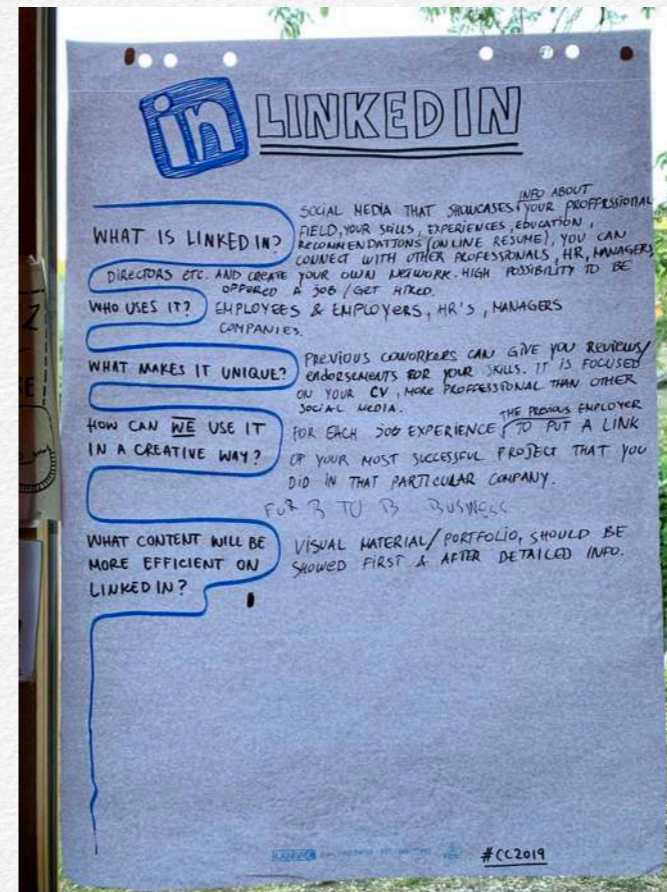 in LINKEDIN
WHAT IS LINKED IN?
SOCIAL MEDIA THAT SHOWCASES INFO ABOUT YOUR PROFFESSIONAL
FIELD, YOUR SKILLS, EXPERIENCES, EDUCATION,
RECOMMENDATIONS (ONLINE RESUME), YOU CAN
CONNECT WITH OTHER PROFESSIONALS, HR, MANAGERS
DIRECTORS ETC. AND CREATE YOUR OWN NETWORK. HIGH POSSIBILITY TO BE
OFFERED A JOB / GET HIRED.
WHO USES IT?
EMPLOYEES & EMPLOYERS, HR'S, MANAGERS
COMPANIES.
WHAT MAKES IT UNIQUE?
PREVIOUS COWORKERS CAN GIVE YOU REVIEWS/
ENDORSEMENTS FOR YOUR SKILLS. IT IS FOCUSED
ON YOUR CV, MORE PROFFESSIONAL THAN OTHER
SOCIAL MEDIA.
HOW CAN WE USE IT
IN A CREATIVE WAY?
FOR EACH JOB EXPERIENCE THE PREVIOUS EMPLOYER TO PUT A LINK
OF YOUR MOST SUCCESSFUL PROJECT THAT YOU
DID IN THAT PARTICULAR COMPANY.
FOR B TO B BUSINESS
WHAT CONTENT WILL BE
MORE EFFICIENT ON
LINKEDIN?
VISUAL MATERIAL/PORTFOLIO, SHOULD BE
SHOWED FIRST & AFTER DETAILED INFO.
#CC2019